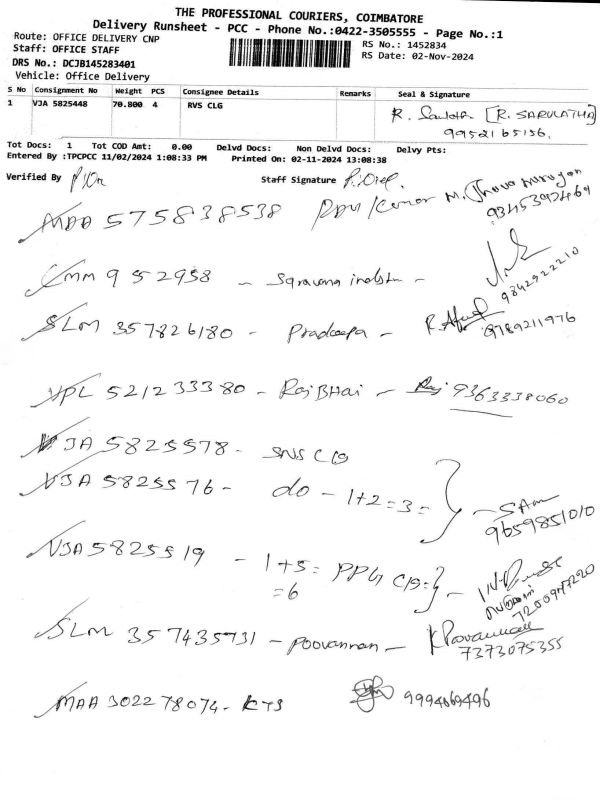 THE PROFESSIONAL COURIERS, COIMBATORE
Delivery Runsheet - PCC - Phone No.:0422-3505555 - Page No.:1
Route: OFFICE DELIVERY CNP
RS No.: 1452834
Staff: OFFICE STAFF
RS Date: 02-Nov-2024
DRS No.: DCJB145283401
Vehicle: Office Delivery
S No Consignment No Weight PCS Consignee Details Remarks Seal & Signature
1 VJA 5825448 70.800 4 RVS CLG R. [R. SARULATHA]
9952165156.
Tot Docs: 1 Tot COD Amt: 0.00 Delvd Docs: Non Delvd Docs: Delvy Pts:
Entered By :TPCPCC 11/02/2024 1:08:33 PM Printed On: 02-11-2024 13:08:38
Verified By Staff Signature
MAA 575838538 M.
9345392469
CMM 9552958 - Saravana -
9842922210
SLM 357826180 - Pradeepa -
9789211976
VPL 521233380 - Raj BHai - Raj 9363338060
VJA 5825578 - SNS Clg
VJA 5825576 - do - 1+2=3=
9659851010
VJA 5825519 - 1+5= PPG Clg=
=6
7200947220
SLM 357435731 - Poovannan - K Poovannan
7373075355
MAA 302278074 - KTS 9994069496